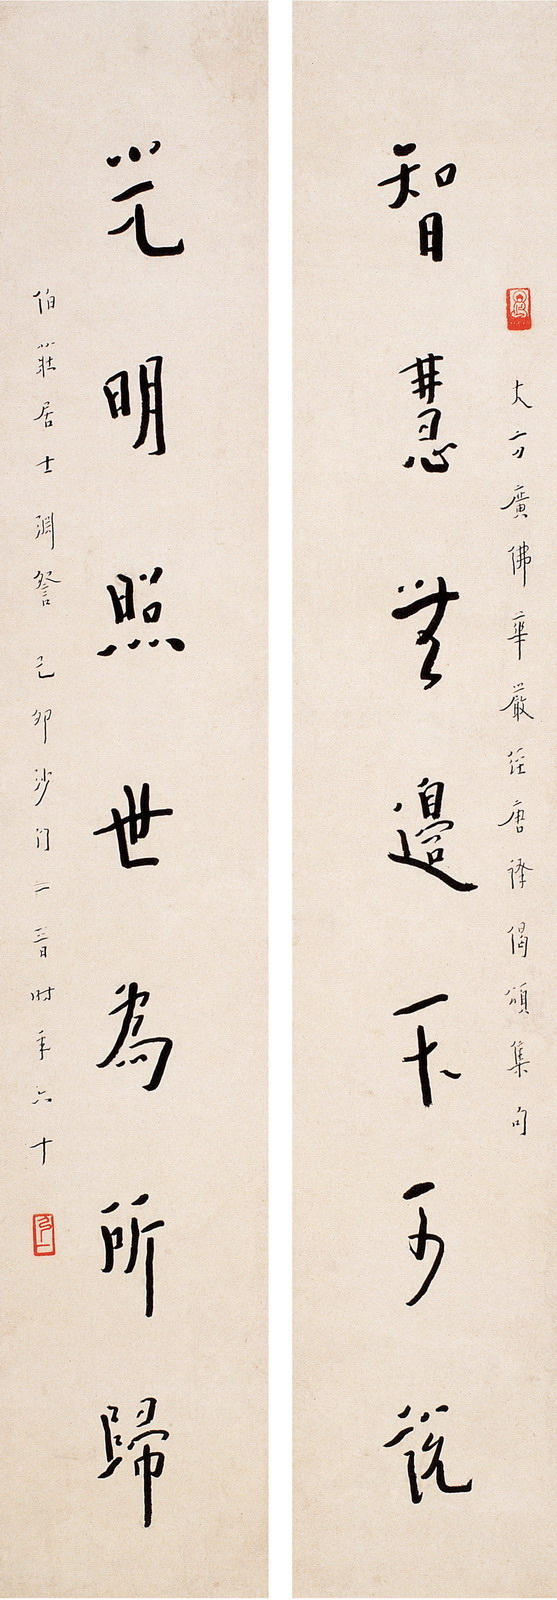 大方廣佛華嚴經唐譯偈頌集句
智慧無邊不可說
光明照世為所歸
伯莊居士淵詧 己卯沙門一音時年六十
弘一